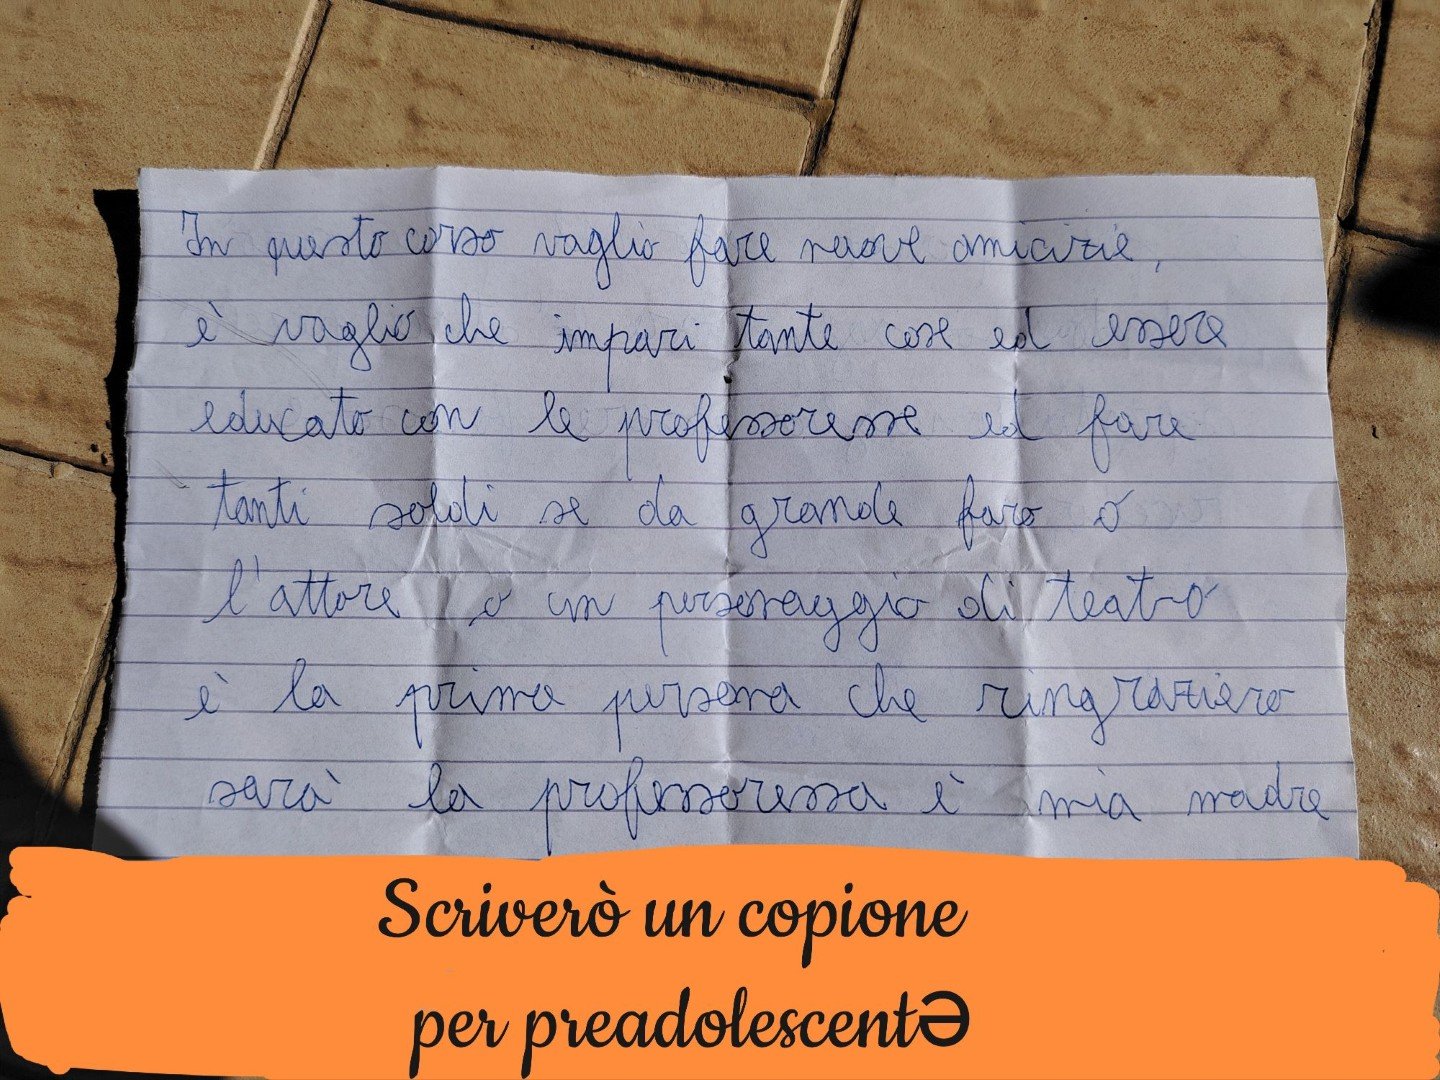 In questo corso voglio fare nuove amicizie,
è voglio che impari tante cose ed essere
educato con le professoresse ed fare
tanti soldi se da grande faro o
l'attore o un personaggio di teatro
è la prima persona che ringraziero
sarà la professoressa è mia madre
Scriverò un copione
per preadolescentƏ